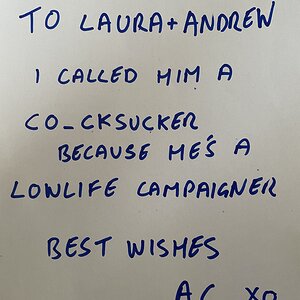 TO LAURA+ANDREW
I CALLED HIM A
CO_CKSUCKER
BECAUSE ME'S A
LOWLIFE CAMPAIGNER
BEST WISHES
AC XO